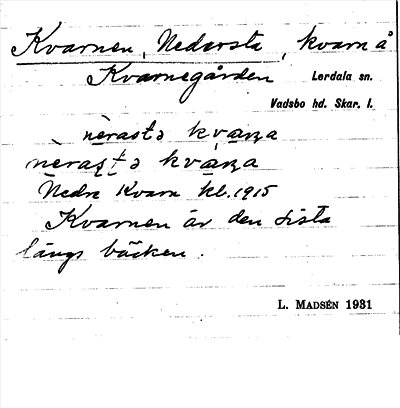 Kvarnen, Nedersta, kvarn å
Kvarnegården Lerdala sn.
Vadsbo hd. Skar. l.
nèrastə kvaṇa
nèrastə kváṇa
Nedre Kvarn kl. 1915
Kvarnen är den sista
längs bäcken.
L. MADSÉN 1931